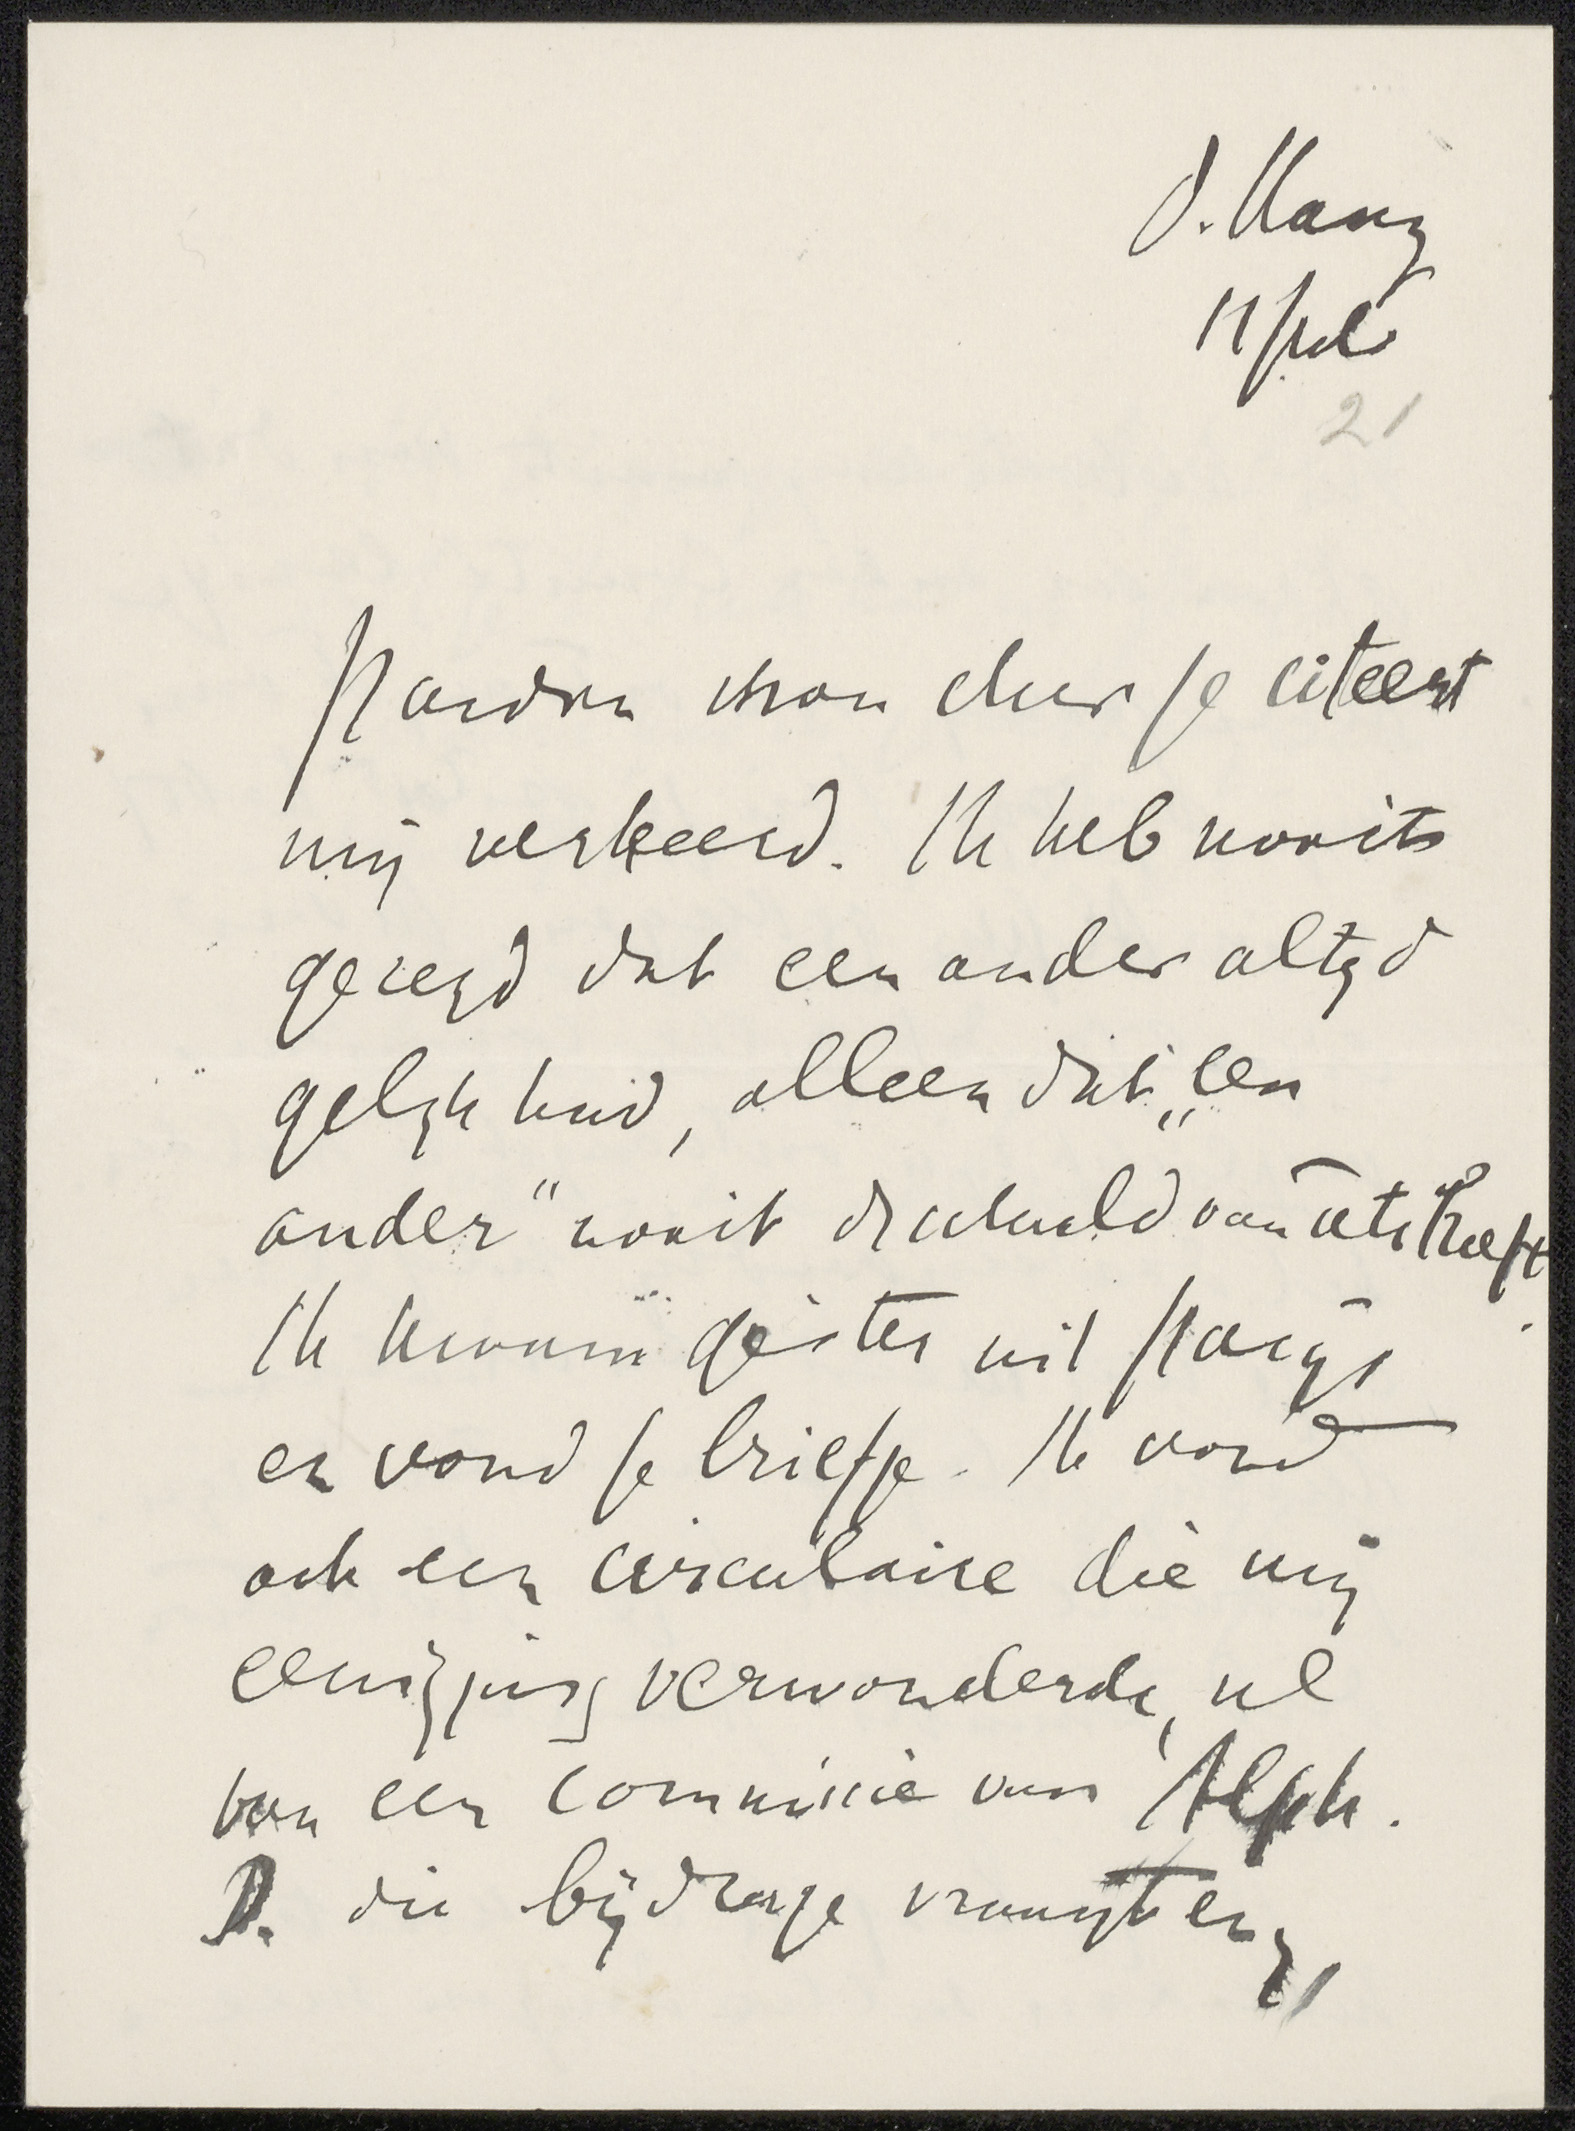 d. Haag
11 febr
21
Pardon mon cher je citeert
mij verkeerd. Ik heb nooits
gezegd dat een ander altyd
gelyk had, alleen dat „een
ander" nooit de schuld van iets heeft.
Ik kwam gister uit Parijs
en vond je briefje. Ik vond
ook een circulaire die mij
eenigzins verwonderde, nl
van een commissie van Alph.
D. die bijdrage vraagt en z/